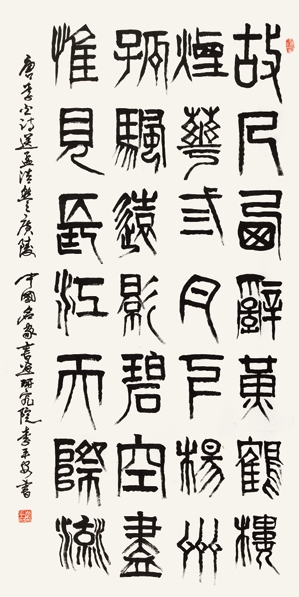 故人西辭黃鶴樓
煙華弎月下楊州
孤颿遠影碧空盡
惟見長江天際流
唐李白诗送孟浩然之廣陵 中國名家書畫研究院李書